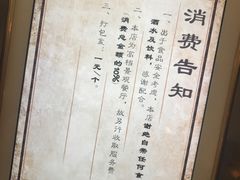 消费告知
一、出于食品安全考虑，本店谢绝自带任何食
酒水及饮料，感谢配合。
二、本店为景观餐厅，故另行收取服务费
消费总金额的10%。
三、打包袋：一元/个。